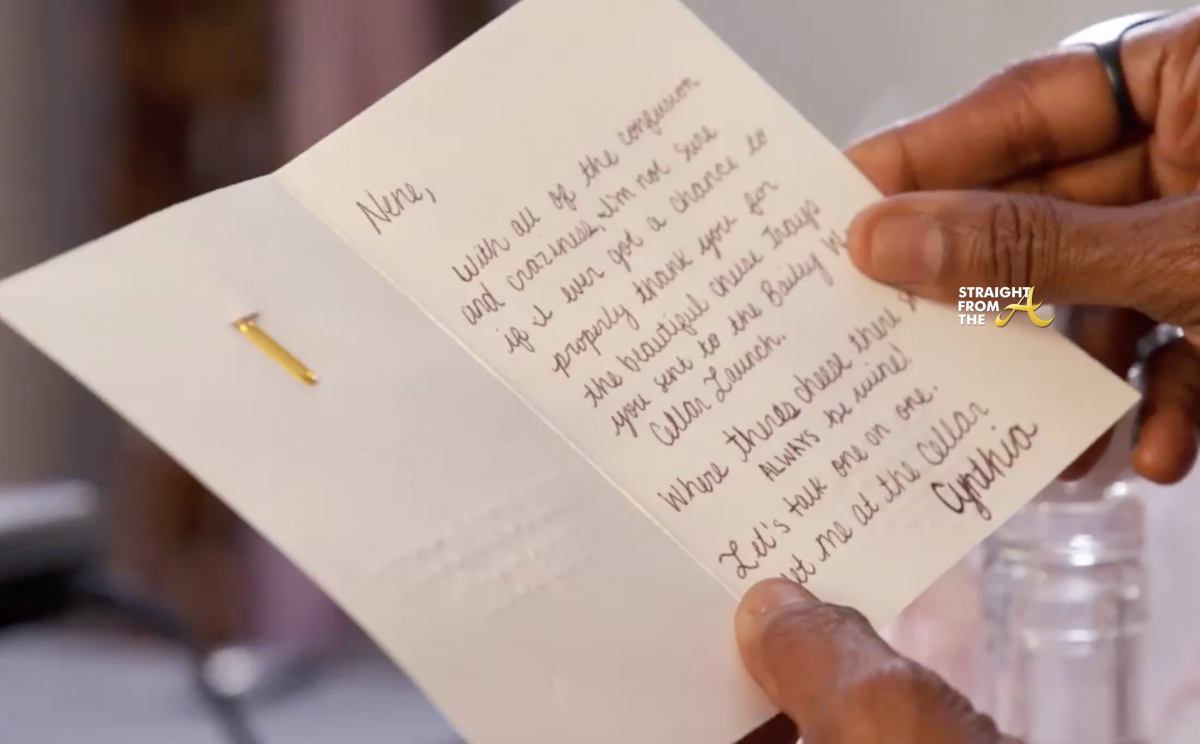 Nene,
With all of the confusion
and craziness, I'm not sure
if it ever got a chance to
properly thank you for
the beautiful cheese trays
you sent to the Bailey
Cellar Launch.
Where theres cheese there
ALWAYS be wine!
Let's talk one on one.
me at the Cellar
Cynthia
STRAIGHT
FROM
THE A